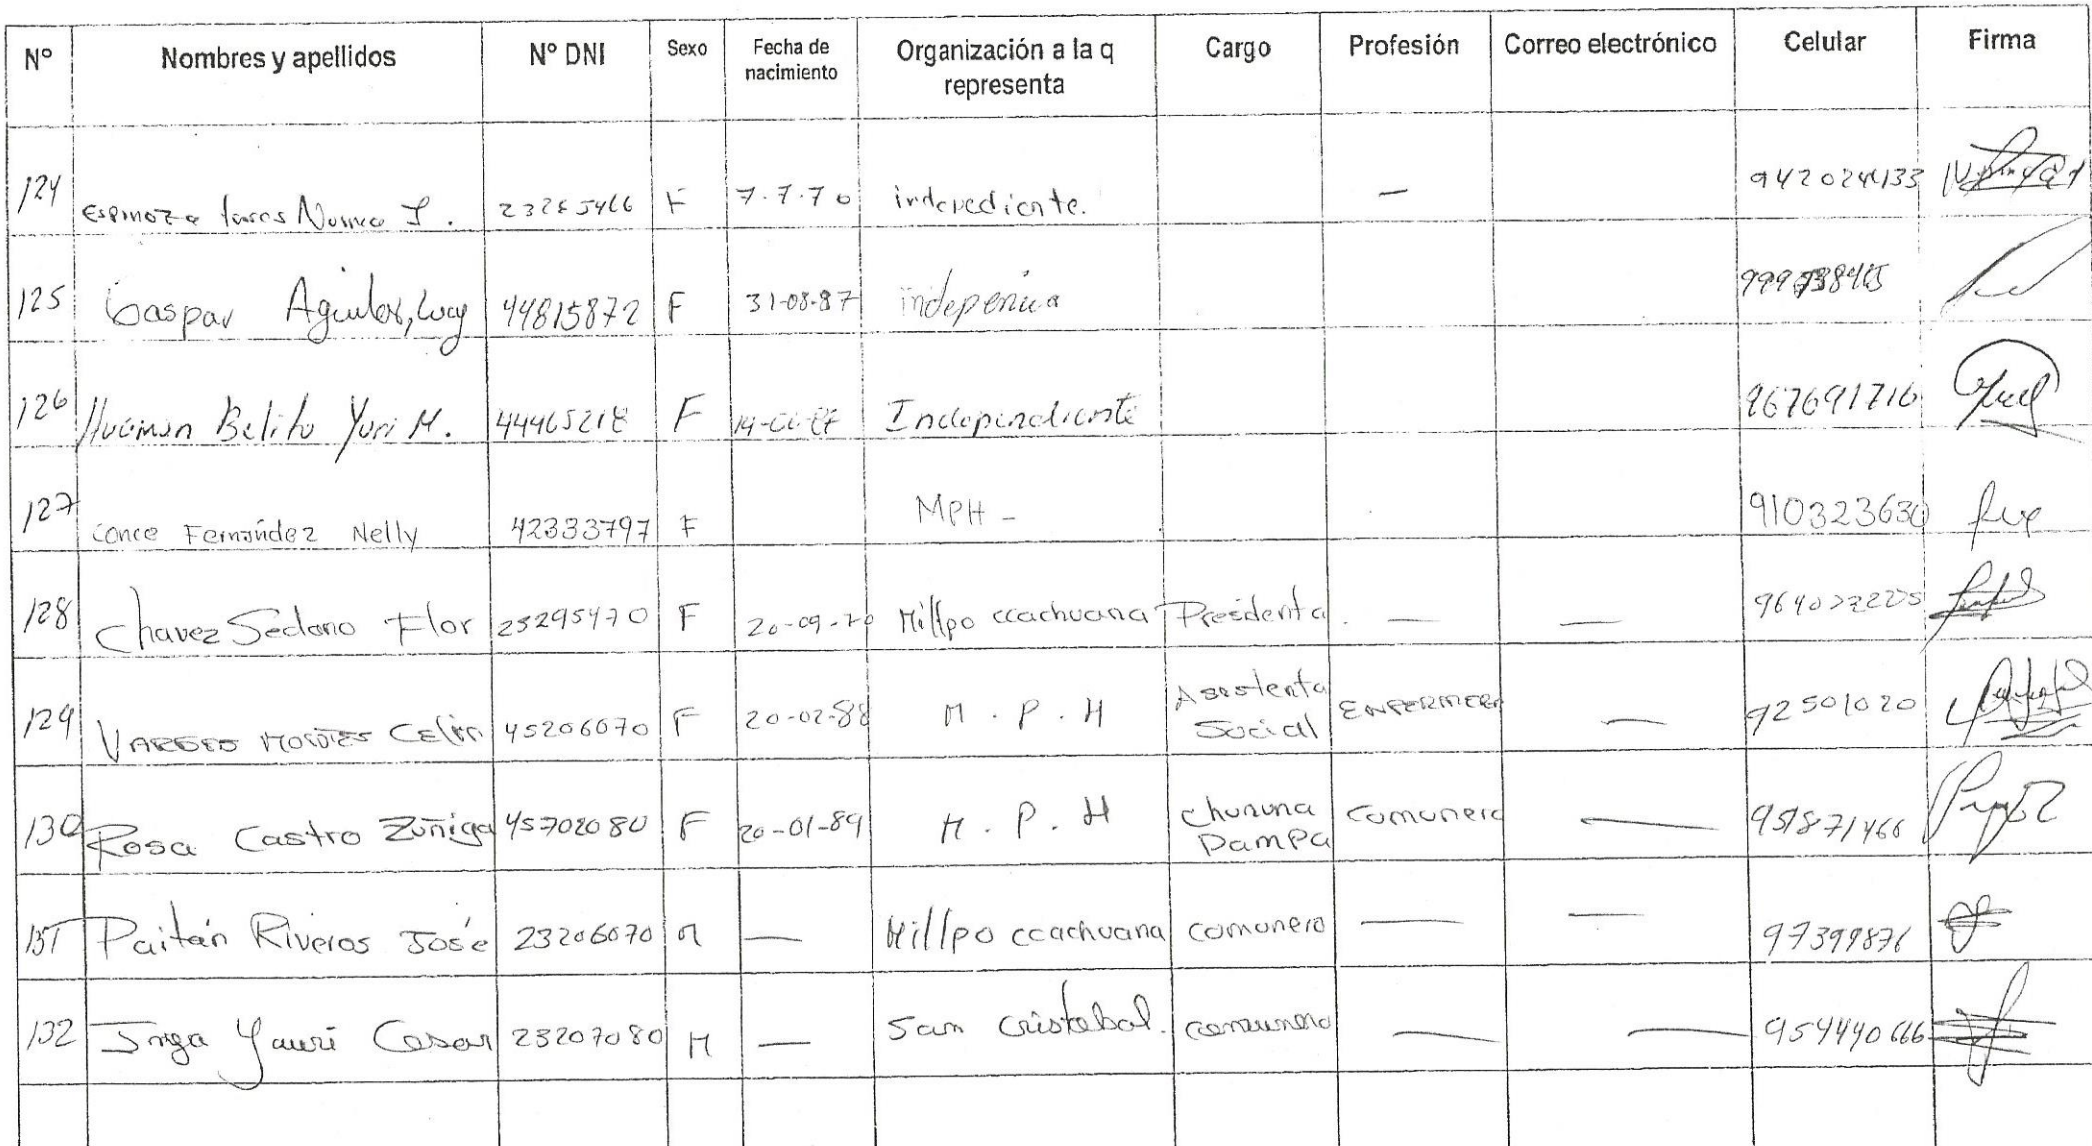 Nº Nombres y apellidos Nº DNI Sexo Fecha de nacimiento Organización a la q representa Cargo Profesión Correo electrónico Celular Firma
124 Espinoza F 7.7.70 —
125 Gaspar Aguilar, Lucy 44815872 F 31-08-87
126 Huaman Belito Yuri M. F Independiente 967691716
127 Conce Fernández Nelly 42333797 F MPH - 910323630
128 Chavez Sedano Flor 25295470 F Millpo ccachuana Presidenta — —
129 45206070 F 20-02-88 M.P.H Asistenta Social ENFERMERA — 92501020
130 Rosa Castro Zuñiga 45702080 F 20-01-89 M.P.H Chununa Pampa Comunera — 951871466
131 Paitán Riveros José 23206070 M — Millpo ccachuana comunero — — 97399876
132 Inga Yauri Cesar 23207080 M — San Cristobal. comunero — — 954440666